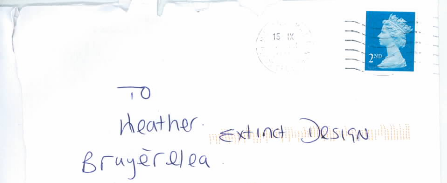 15 IX
2ND
TO
Heather. Extinct DESIGN
Bruyèrelea.